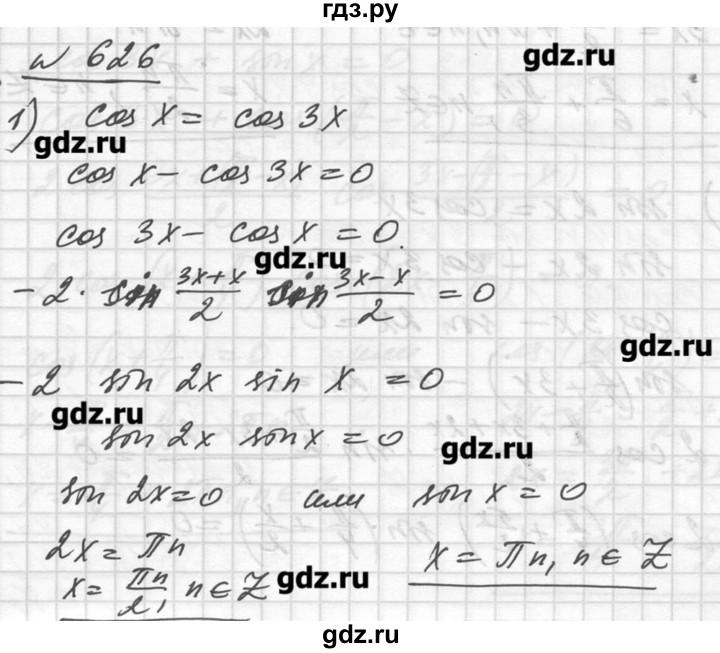 гдз.ру
№ 626
gdz.ru
1) cos x = cos 3x
gdz.ru
cos x − cos 3x = 0
cos 3x − cos x = 0.
gdz.ru
−2 · sin (3x+x)/2 sin (3x−x)/2 = 0
gdz.ru
−2 sin 2x sin x = 0
gdz.ru
sin 2x sin x = 0
gdz.ru
sin 2x = 0 или sin x = 0
2x = πn
x = πn, n ∈ Z
x = πn/2, n ∈ Z
gdz.ru
gdz.ru